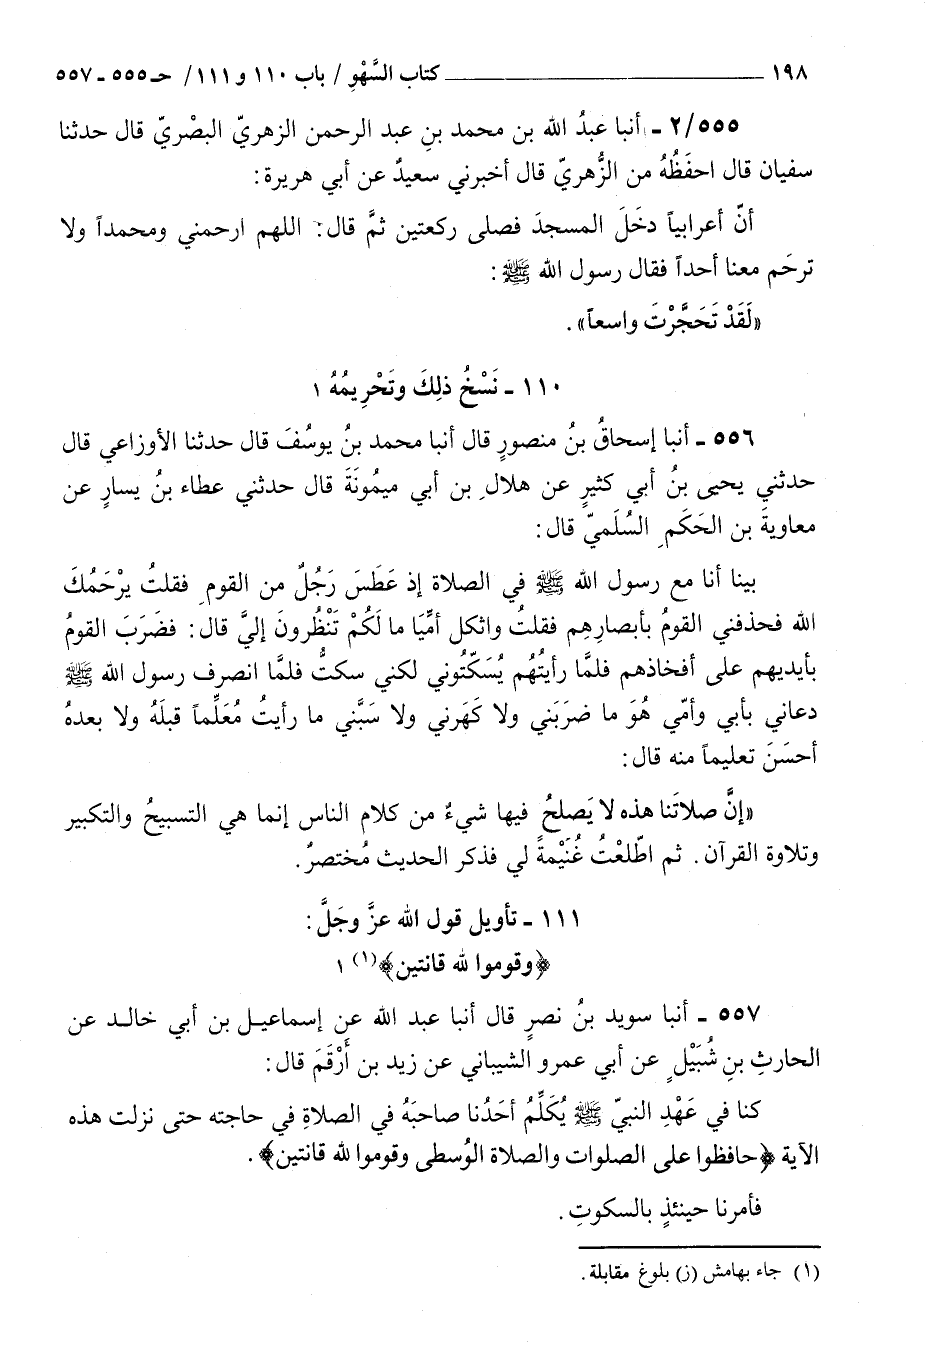 ١٩٨ ــــــــــــــــــــــــــــــــ كتاب السَّهْوِ / باب ١١٠ و١١١/ حـ ٥٥٥ ـ ٥٥٧
٢/٥٥٥ ـ أنبا عبدُ الله بن محمد بنِ عبد الرحمن الزهريّ البصْريّ قال حدثنا
سفيان قال احفَظُهُ من الزُّهريّ قال أخبرني سعيدٌ عن أبي هريرة:
أنّ أعرابياً دخَلَ المسجدَ فصلى ركعتين ثمَّ قال: اللهم ارحمني ومحمداً ولا
ترحَم معنا أحداً فقال رسول الله ﷺ:
«لَقَدْ تَحَجَّرْتَ واسعاً».
١١٠ ـ نَسْخُ ذلِكَ وتَحْرِيمُهُ ١
٥٥٦ ـ أنبا إسحاقُ بنُ منصورٍ قال أنبا محمد بنُ يوسُفَ قال حدثنا الأوزاعي قال
حدثني يحيى بنُ أبي كثيرٍ عن هلالِ بن أبي ميمُونَةَ قال حدثني عطاء بنُ يسارٍ عن
معاويةَ بن الحَكَمِ السُلَميّ قال:
بينا أنا مع رسول الله ﷺ في الصلاة إذ عَطَسَ رَجُلٌ من القومِ فقلتُ يرْحَمُكَ
الله فحذفني القومُ بأبصارِهِم فقلتُ واثكل أمِّيَا ما لَكُمْ تَنْظُرونَ إليَّ قال: فضَرَبَ القومُ
بأيديهم على أفخاذهم فلمَّا رأيتُهُم يُسَكّتُوني لكني سكتُّ فلمَّا انصرف رسول الله ﷺ
دعاني بأبي وأمّي هُوَ ما ضرَبَني ولا كَهَرني ولا سَبَّني ما رأيتُ مُعَلِّماً قبلَهُ ولا بعدهُ
أحسَنَ تعليماً منه قال:
«إنَّ صلاتَنا هذه لا يَصلحُ فيها شيءٌ من كلام الناس إنما هي التسبيحُ والتكبير
وتلاوة القرآن. ثم اطّلعْتُ غُنَيْمةً لي فذكر الحديث مُختصرٌ.
١١١ ـ تأويل قول الله عزَّ وجَلَّ:
﴿وقوموا لله قانتين﴾(١) ١
٥٥٧ ـ أنبا سويد بنُ نصرٍ قال أنبا عبد الله عن إسماعيل بن أبي خالد عن
الحارثِ بنِ شُبَيْلٍ عن أبي عمرو الشيباني عن زيد بن أَرْقَمَ قال:
كنا في عَهْدِ النبيّ ﷺ يُكَلِّمُ أحَدُنا صاحبَهُ في الصلاةِ في حاجته حتى نزلت هذه
الآية ﴿حافظوا على الصلوات والصلاة الوُسطى وقوموا لله قانتين﴾.
فأمرنا حينئذٍ بالسكوتِ.
(١) جاء بهامش (ز) بلوغ مقابلة.